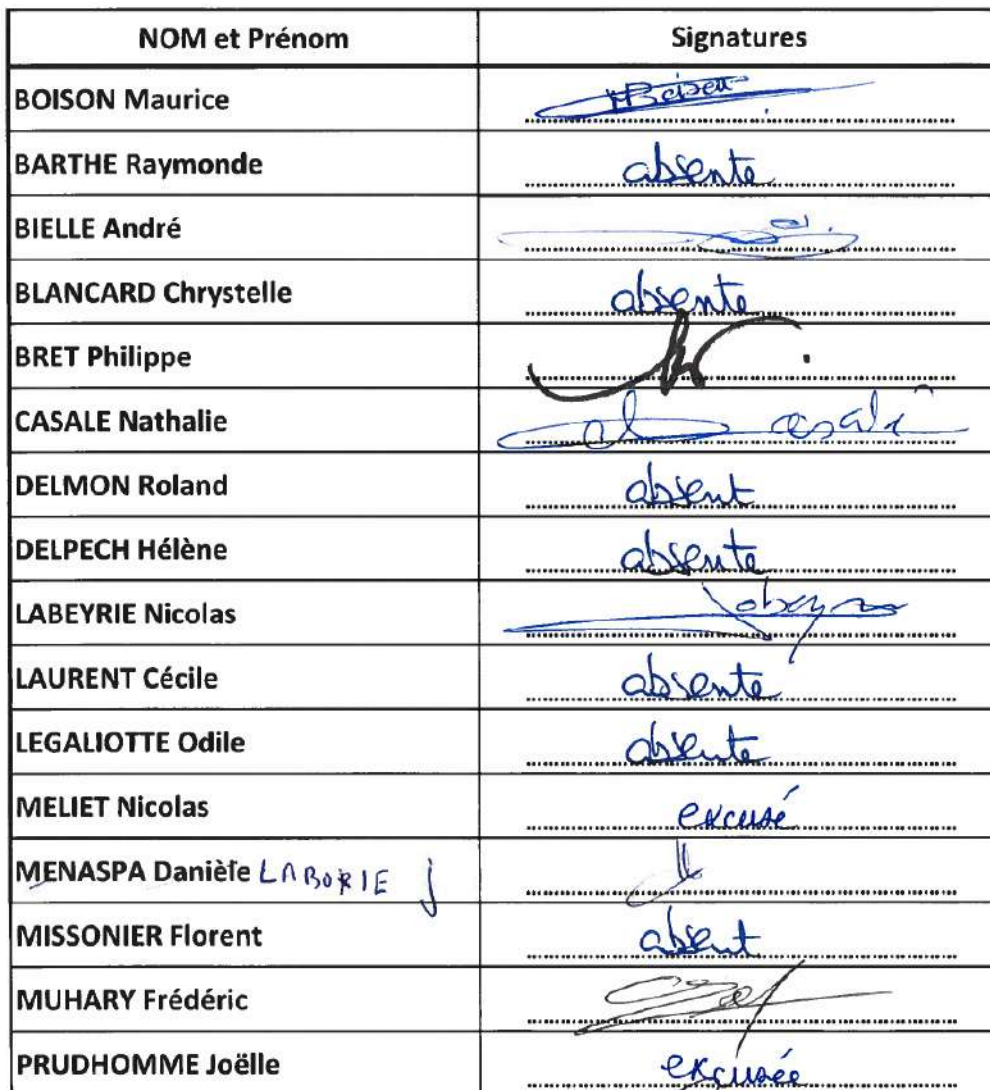 NOM et Prénom Signatures
BOISON Maurice MBoison
BARTHE Raymonde absente
BIELLE André
BLANCARD Chrystelle absente
BRET Philippe
CASALE Nathalie Casale
DELMON Roland absent
DELPECH Hélène absente
LABEYRIE Nicolas
LAURENT Cécile absente
LEGALIOTTE Odile absente
MELIET Nicolas excusé
MENASPA Danièle LABORIE J
MISSONIER Florent absent
MUHARY Frédéric
PRUDHOMME Joëlle excusée